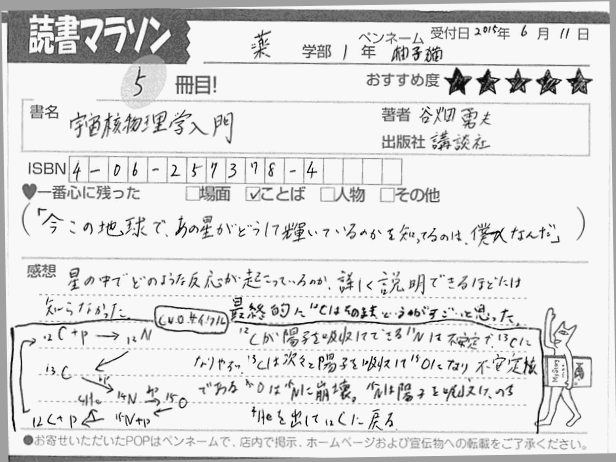 読書マラソン
薬 学部 1 年 ペンネーム 柚子猫 受付日 2015年 6 月 11 日
5 冊目!
おすすめ度 ★★★★★
書名 宇宙核物理学入門
著者 谷畑勇夫
出版社 講談社
ISBN 4-06-257378-4
♥一番心に残った □場面 ☑ことば □人物 □その他
(「今この地球で、あの星がどうして輝いているのかを知ってるのは、僕なんだ」)
感想 星の中でどのような反応が起こっているのか、詳しく説明できるほどには
知らなかった。最終的に¹²Cはそのままというのがすごいと思った。
C.N.Oサイクル
12C+p→12N
13C
4He 15N 15O
12C+p 15N+p
¹²Cが陽子を吸収してできる¹³Nは不安定で¹³Cに
なりやすい。¹³Cは次々と陽子を吸収して¹⁵Oになり不安定核
である¹⁵Oは¹⁵Nに崩壊。¹⁵Nは陽子を吸収したのち
⁴Heを出して12Cに戻る
●お寄せいただいたPOPはペンネームで、店内で掲示、ホームページおよび宣伝物への転載をご了承ください。